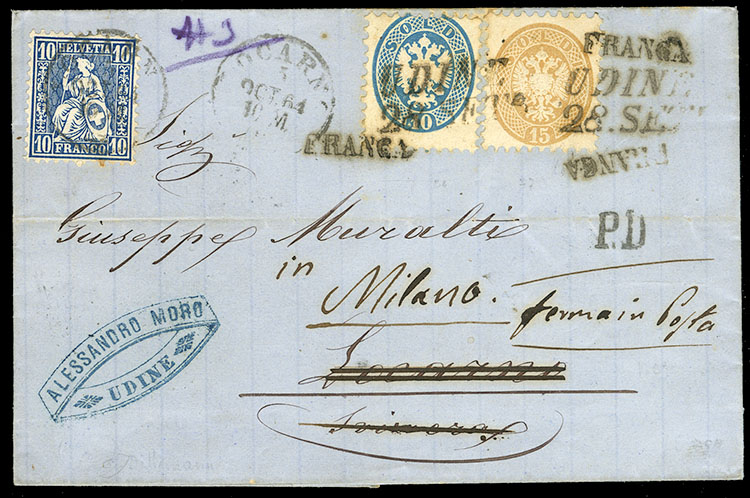 10 HELVETIA 10
10 FRANCO 10
#9
OCT 64
10 M
SOLDI
10
SOLDI
15
UDINE
FRANCA
FRANCA
UDINE
28. SET
FRANCA
P.D
Sigr
Giuseppe Muralti
in
Milano.
ferma in Posta
Locarno
Svizzera
ALESSANDRO MORO
UDINE